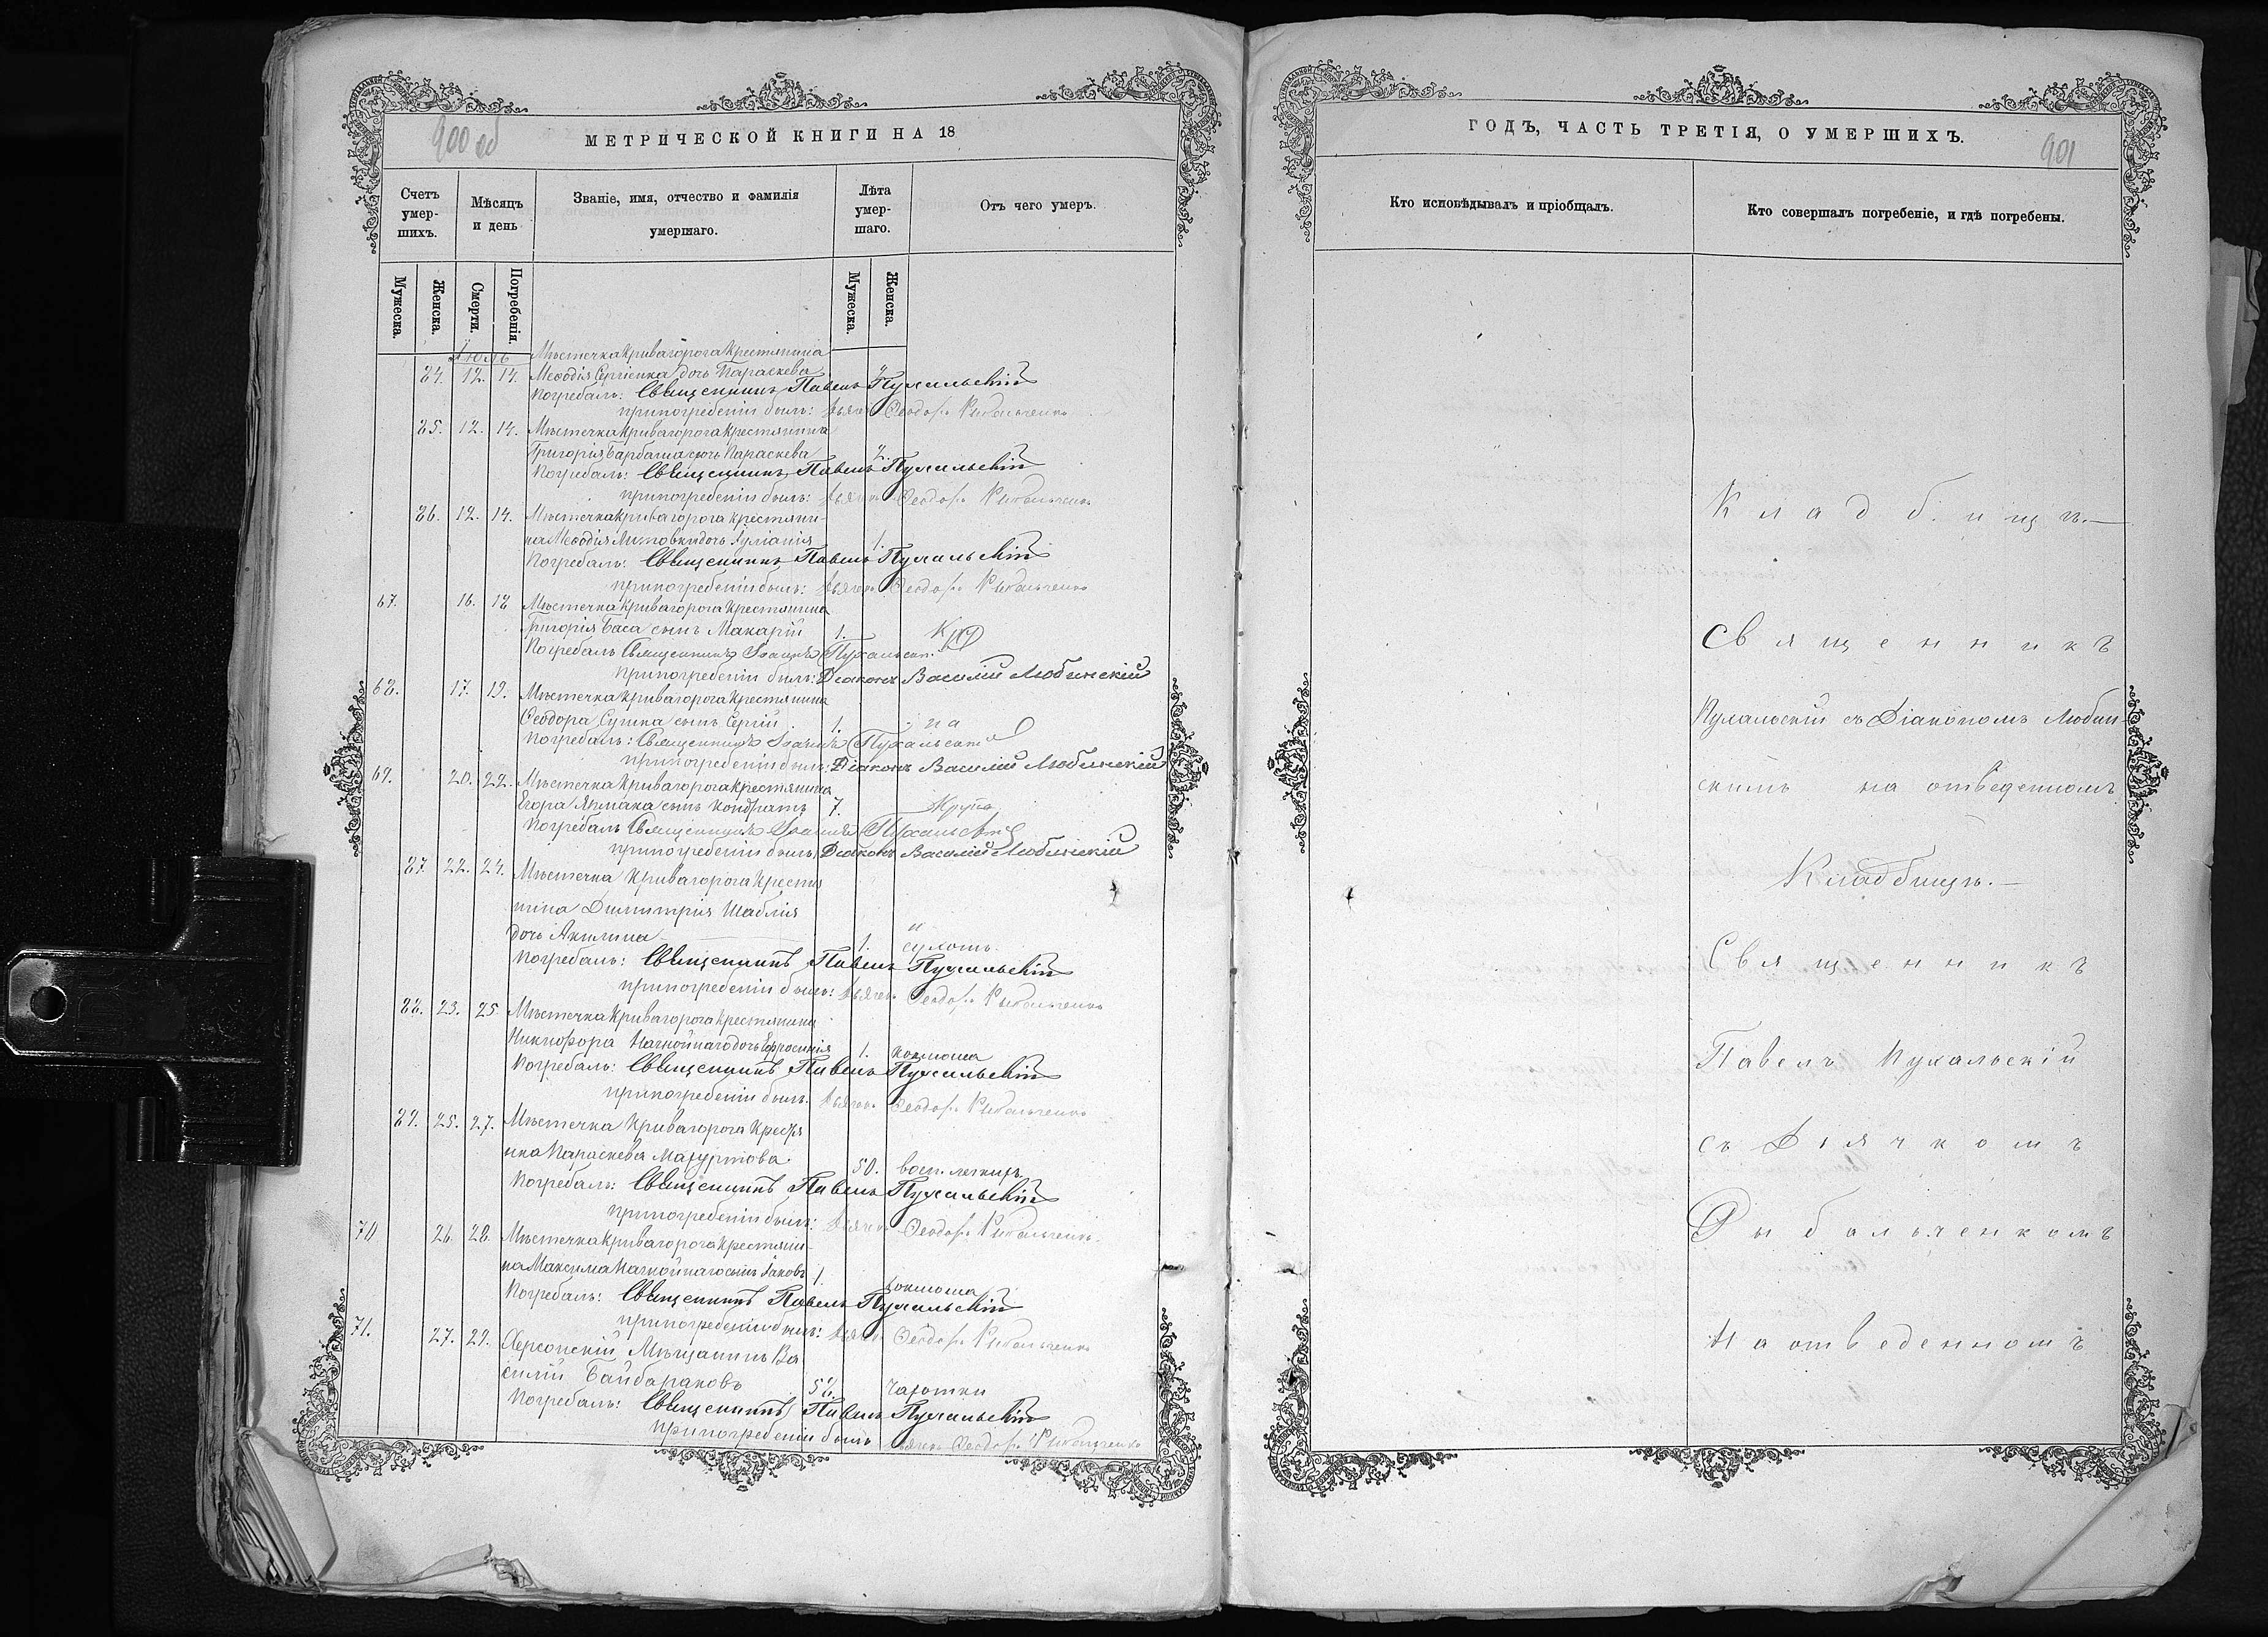 900 об
МЕТРИЧЕСКОЙ КНИГИ НА 18
Счетъ умер-шихъ.
Мѣсяцъ и день
Званіе, имя, отчество и фамилія умершаго.
Лѣта умер-шаго.
Отъ чего умеръ.
Мужеска.
Женска.
Смерти.
Погребенія.
Мужеска.
Женска.
Іюль
Мѣстечка Кривагорога крестянина
84. 12. 14. Меѳодія Сергіенка дочь Параскева
Погребалъ: Священникъ Павелъ Пухальскій
при погребеніи былъ: дьячк Ѳеодоръ Рыбальченко
85. 12. 14. Мѣстечка Кривагорога крестянина
Григорія Барбаша дочь Параскева 2.
Погребалъ: Священникъ Павелъ Пухальскій
при погребеніи былъ: дьячк Ѳеодоръ Рыбальченко
86. 12. 14. Мѣстечка Кривагорога крестяни-
на Меѳодія Литовки дочь Іуліанія 1.
Погребалъ: Священникъ Павелъ Пухальскій
при погребеніи былъ: дьячк Ѳеодоръ Рыбальченко
67. 16. 18 Мѣстечка Кривагорога крестянина
Григорія Баса сынъ Макарій 1.
Погребалъ Священникъ Іоаннъ Пухальскій
При погребеніи былъ: Діаконъ Василій Любинскій
68. 17. 19. Мѣстечка Кривагорога крестянина
Ѳеодора Сушка сынъ Сергій 1.
Погребалъ: Священникъ Іоаннъ Пухальскій
при погребеніи былъ: Діаконъ Василій Любинскій
69. 20. 22. Мѣстечка Кривагорога крестянина
Егора Ярмака сынъ Кондратъ 7. Крупа
Погребалъ Священникъ Іоаннъ Пухальскій
при погребеніи былъ: Діаконъ Василій Любинскій
87. 22. 24. Мѣстечка Кривагорога Крестя
нина Димитрія Шаблія
дочь Акилина 1. сухотъ.
Погребалъ: Священникъ Павелъ Пухальскій
при погребеніи былъ: дьячк Ѳеодоръ Рыбальченко
88. 23. 25. Мѣстечка Кривагорога крестянина
Никифора Нагнойнаго дочь Ефросинія 1. коклюша
Погребалъ: Священникъ Павелъ Пухальскій
при погребеніи былъ. дьячк. Ѳеодоръ Рыбальченко
89. 25. 27. Мѣстечка Кривагорога Крестя
нка Параскева Мазуртова. 50. восп. легкихъ
Погребалъ: Священникъ Павелъ Пухальскій
при погребеніи былъ: дьячк Ѳеодоръ Рыбальченко
70 26. 28. Мѣстечка Кривагорога крестяни-
на Максима Нагнойнаго сынъ Іаковъ 1. коклюша
Погребалъ: Священникъ Павелъ Пухальскій
при погребеніи былъ: дьячк Ѳеодоръ Рыбальченко
71. 27. 29. Херсонскій Мѣщанинъ Ва
силій Байбараковъ 58. чахотки
Погребалъ: Священникъ Павелъ Пухальскій
при погребеніи былъ дьячк Ѳеодоръ Рыбальченко
ГОДЪ, ЧАСТЬ ТРЕТІЯ, О УМЕРШИХЪ.
901
Кто исповѣдывалъ и пріобщалъ.
Кто совершалъ погребеніе, и гдѣ погребены.
Кладбищѣ.—
Священникъ
Пухальскій съ Діакономъ Любин-
скимъ на отведенномъ
Кладбищѣ.—
Священникъ
Павелъ Пухальскій
съ Дьячкомъ
Рыбальченкомъ
На отведенномъ